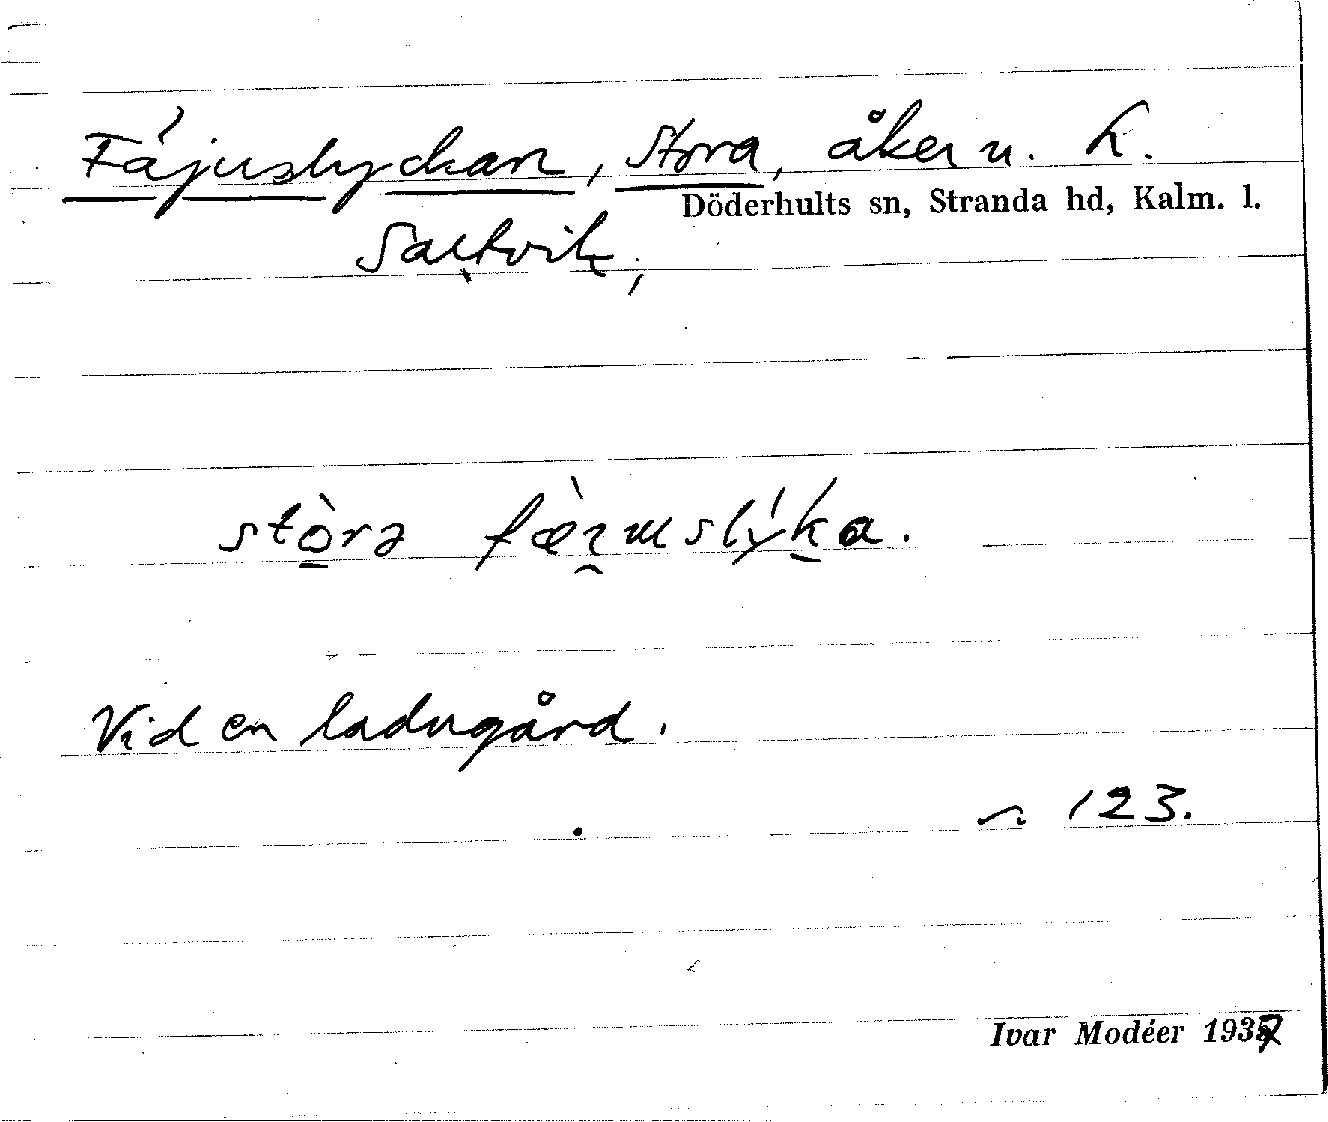 Fájuslyckan, Stora, åker u. h.
Döderhults sn, Stranda hd, Kalm. l.
Saltvik;
stòrə fæ̀ʒɯslýka.
Vid en ladugård.
123.
Ivar Modéer 1937